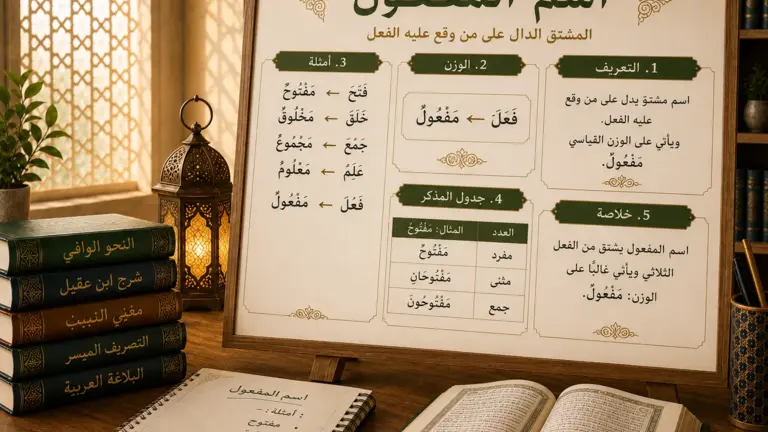 اسم المفعول
المشتق الدال على من وقع عليه الفعل
1. التعريف
اسم مشتق يدل على من وقع
عليه الفعل.
ويأتي على الوزن القياسي
مَفْعُولٌ.
2. الوزن
فَعَلَ ← مَفْعُولٌ
3. أمثلة
فَتَحَ ← مَفْتُوحٌ
خَلَقَ ← مَخْلُوقٌ
جَمَعَ ← مَجْمُوعٌ
عَلِمُ ← مَعْلُومٌ
فَعُلَ ← مَفْعُولٌ
4. جدول المذكر
العدد المثال: مَفْتُوحٌ
مفرد مَفْتُوحٌ
مثنى مَفْتُوحَانِ
جمع مَفْتُوحُونَ
5. خلاصة
اسم المفعول يشتق من الفعل
الثلاثي ويأتي غالبًا على
الوزن: مَفْعُولٌ.
النحو الوافي
شرح ابن عقيل
مغني
التصريف الميسر
البلاغة العربية
اسم المفعول
أمثلة :-
مفتوح